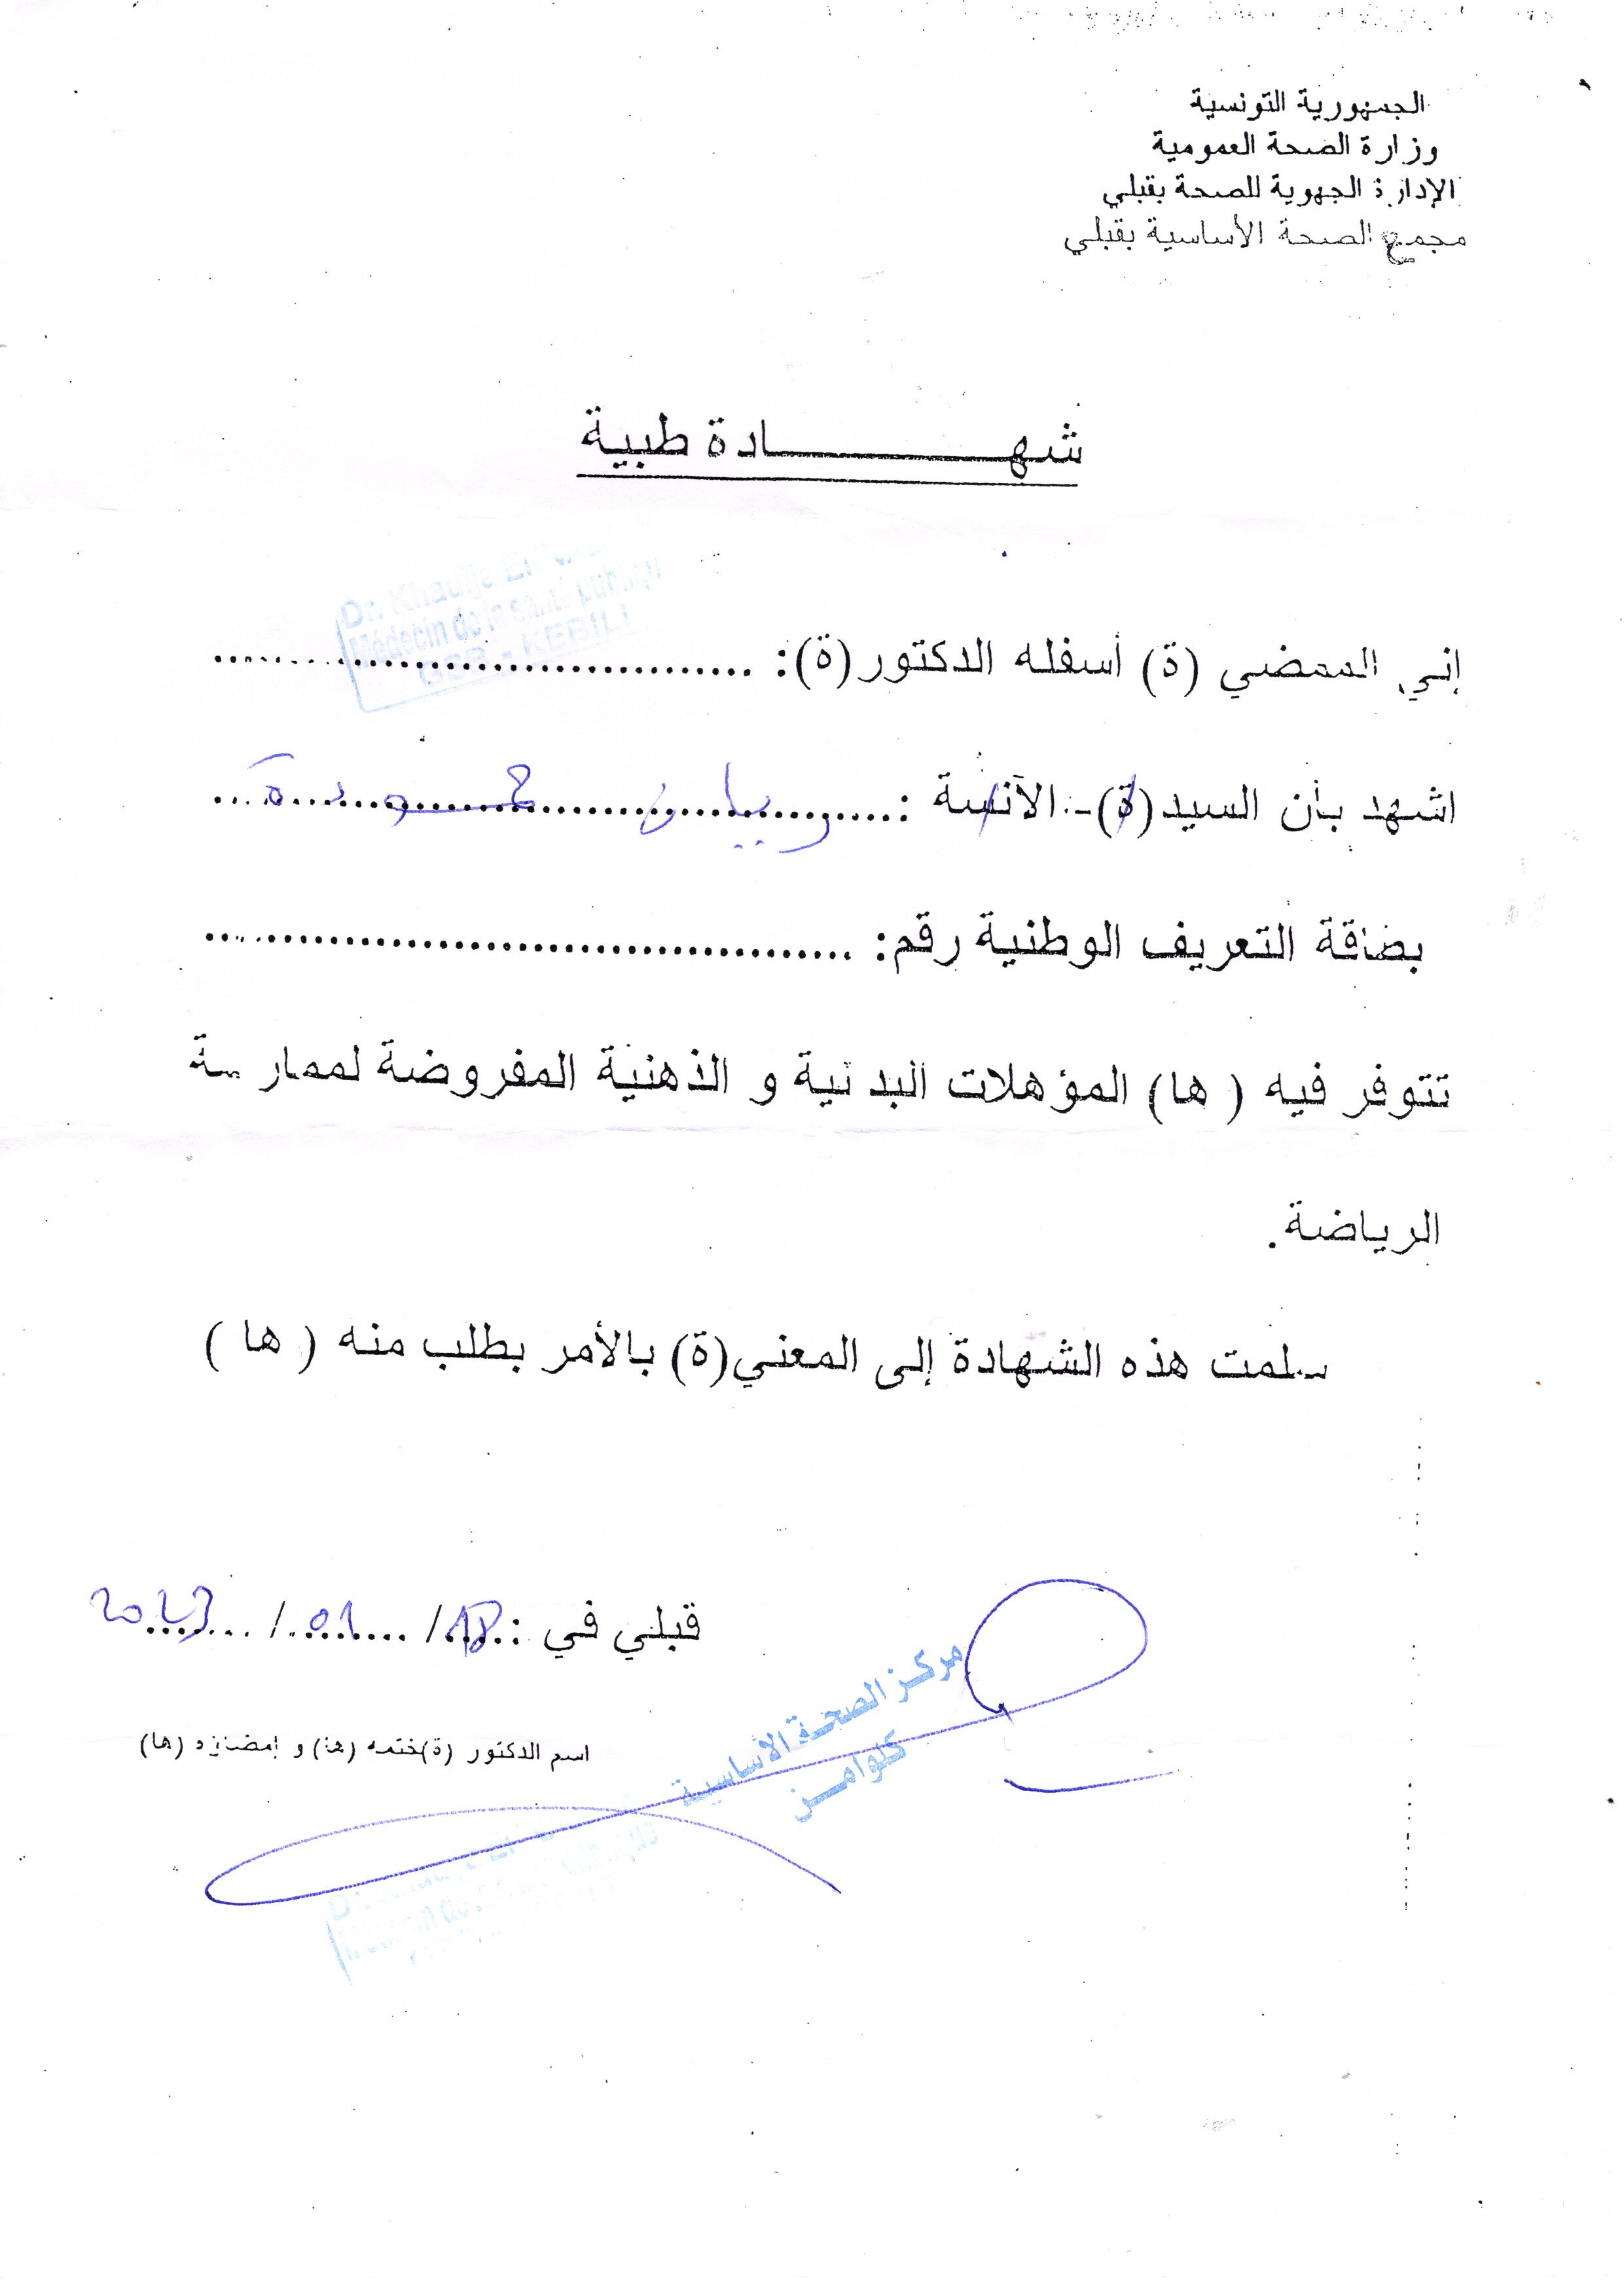 الجمهورية التونسية
وزارة الصحة العمومية
الإدارة الجهوية للصحة بقبلي
مجمع الصحة الأساسية بقبلي
شهـــــــــادة طبية
Dr. Khadija
Médecin de la santé publique
GSB - KEBILI
إني الممضي (ة) أسفله الدكتور(ة): ..................................
اشهد بأن السيد(ة)-الآنسة :..........................................
بطاقة التعريف الوطنية رقم: ..........................................
تتوفر فيه ( ها) المؤهلات البدنية و الذهنية المفروضة لممارسة
الرياضة.
سلمت هذه الشهادة إلى المعني(ة) بالأمر بطلب منه ( ها )
قبلي في :..18../..01../..2013
مركز الصحة الأساسية
اسم الدكتور (ة)ختمه (ها) و إمضاؤه (ها)